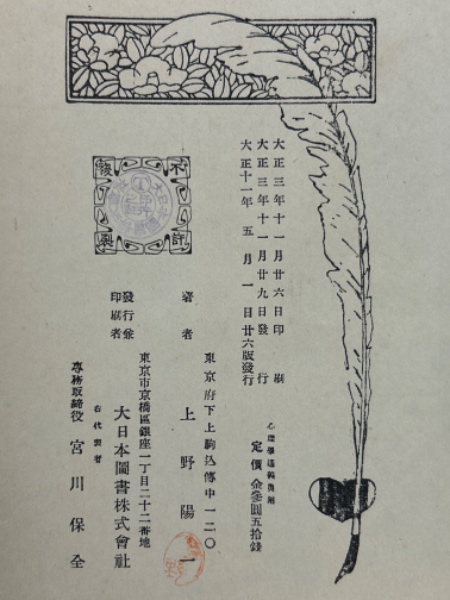 大正三年十一月廿六日印刷
大正三年十一月廿九日發行
大正十一年五月一日廿六版發行
定價金參圓五拾錢
不許複製
東京府下上駒込傳中一二〇
著者 上野陽一
東京市京橋區銀座一丁目二十二番地
發行兼印刷者 大日本圖書株式會社
右代表者
專務取締役 宮川保全